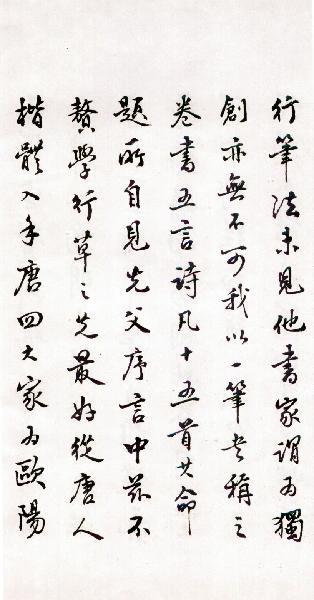 行筆法未見他書家謂为獨
創亦無不可我以一筆書稱之
卷書五言詩凡十五首其命
題所自見先父序言中茲不
贅學行草之先最好從唐人
楷體入手唐四大家为歐陽